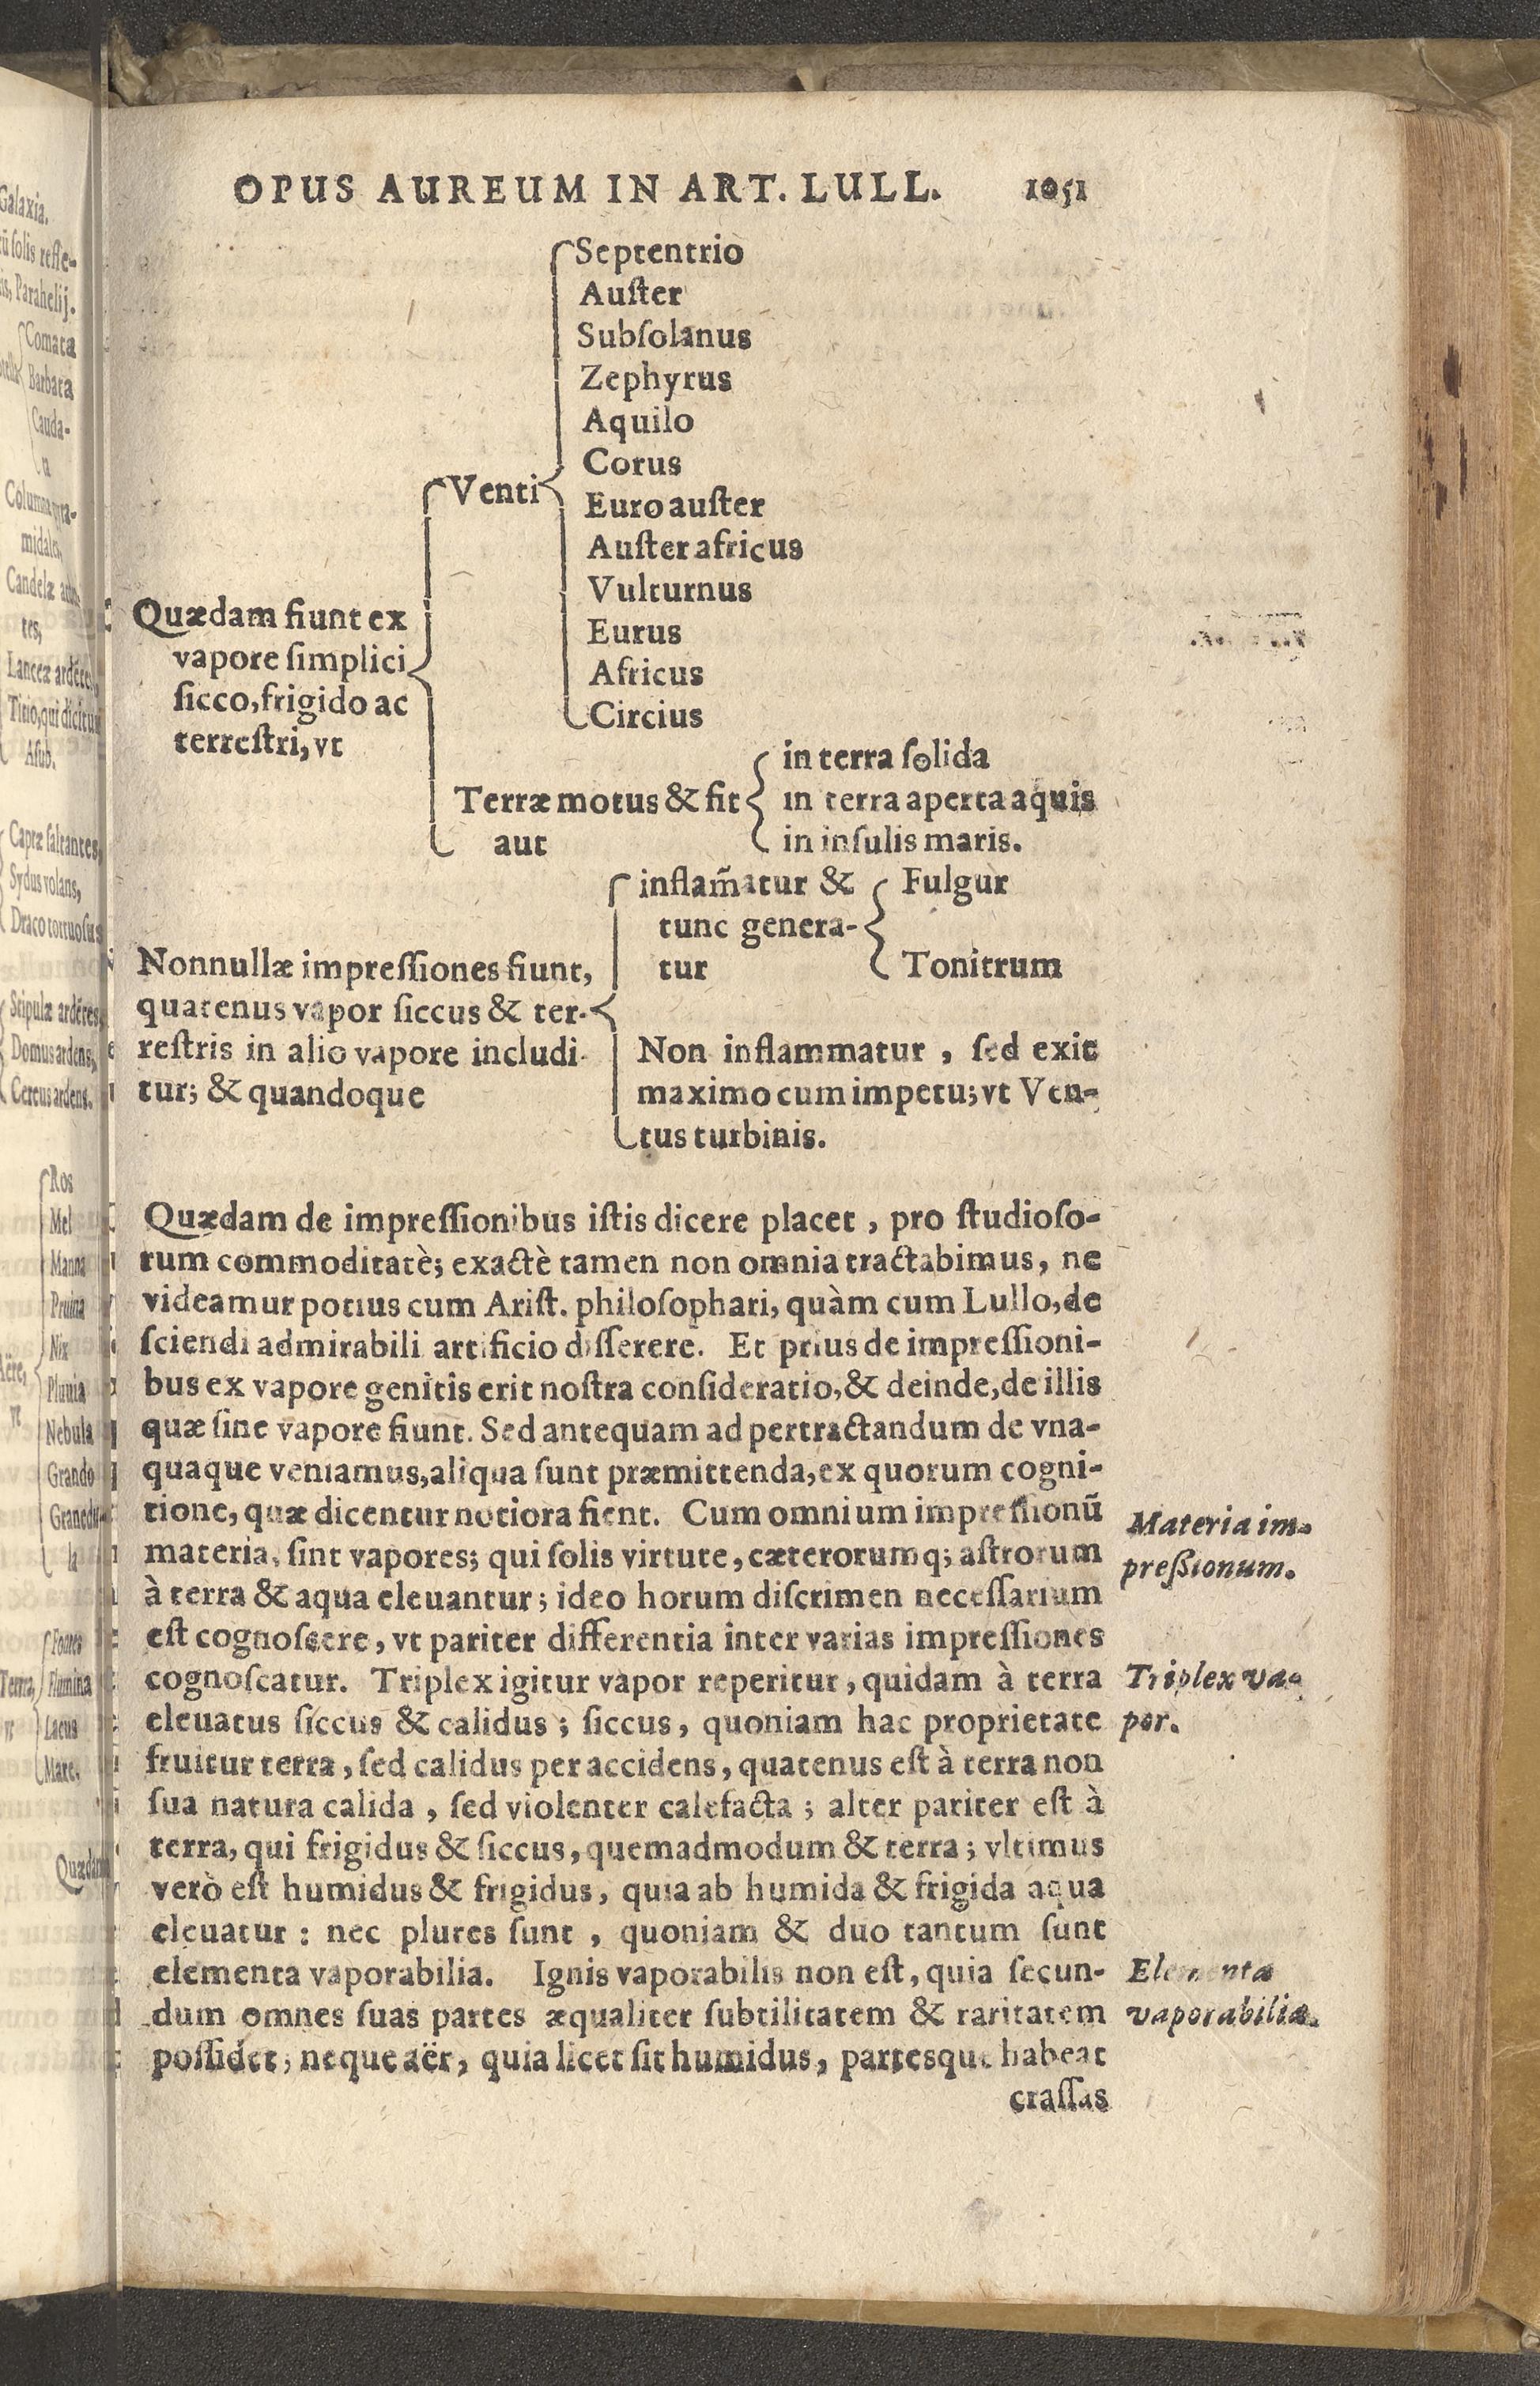 OPUS AUREUM IN ART. LULL. 1051
Septentrio
Auſter
Subſolanus
Zephyrus
Aquilo
Corus
Venti
Euroauſter
Auſterafricus
Vulturnus
Quædam fiunt ex
Eurus
vapore ſimplici
Africus
ſicco, frigido ac
Circius
terreſtri, vt
in terra ſolida
Terræ motus & fit
in terra aperta aquis
aut
in inſulis maris.
inflam̃atur &
Fulgur
tunc genera-
tur
Tonitrum
Nonnullæ impreſſiones fiunt,
quatenus vapor ſiccus & ter-
reſtris in alio vapore includi-
tur; & quandoque
Non inflammatur, ſed exit
maximo cum impetu; vt Ven-
tus turbinis.
Quædam de impreſſionibus iſtis dicere placet, pro ſtudioſo-
rum commoditatè; exactè tamen non omnia tractabimus, ne
videamur potius cum Ariſt. philoſophari, quàm cum Lullo, de
ſciendi admirabili artificio diſſerere. Et prius de impreſſioni-
bus ex vapore genitis erit noſtra conſideratio, & deinde, de illis
quæ ſine vapore fiunt. Sed antequam ad pertractandum de vna-
quaque veniamus, aliqua ſunt præmittenda, ex quorum cogni-
tione, quæ dicentur notiora fient. Cum omnium impreſſionũ
materia, ſint vapores; qui ſolis virtute, cæterorumq; aſtrorum
à terra & aqua eleuantur; ideo horum diſcrimen neceſſarium
eſt cognoſcere, vt pariter differentia inter varias impreſſiones
cognoſcatur. Triplex igitur vapor reperitur, quidam à terra
eleuatus ſiccus & calidus; ſiccus, quoniam hac proprietate
fruitur terra, ſed calidus per accidens, quatenus eſt à terra non
ſua natura calida, ſed violenter calefacta; alter pariter eſt à
terra, qui frigidus & ſiccus, quemadmodum & terra; vltimus
verò eſt humidus & frigidus, quia ab humida & frigida aqua
eleuatur: nec plures ſunt, quoniam & duo tantum ſunt
elementa vaporabilia. Ignis vaporabilis non eſt, quia ſecun-
dum omnes ſuas partes æqualiter ſubtilitatem & raritatem
poſſidet, neque aër, quia licet ſit humidus, partesque habeat
craſſas
Materia im-
preßionum.
Triplex va-
por.
Elementa
vaporabilia.
Galaxia.
Parahelij.
Comata
Barbata
Cauda-
Candelæ
tes,
Aſub.
Capræ ſaltantes,
Sydus volans,
Draco tortuoſus
Stipulæ ardẽtes,
Domus ardens,
Cereus ardens.
Ros
Mel
Manna
Pruina
Nix
Pluuia
Nebula
Grando
Fontes
Flumina
Lacus
Mare.
Terra,
Quædam